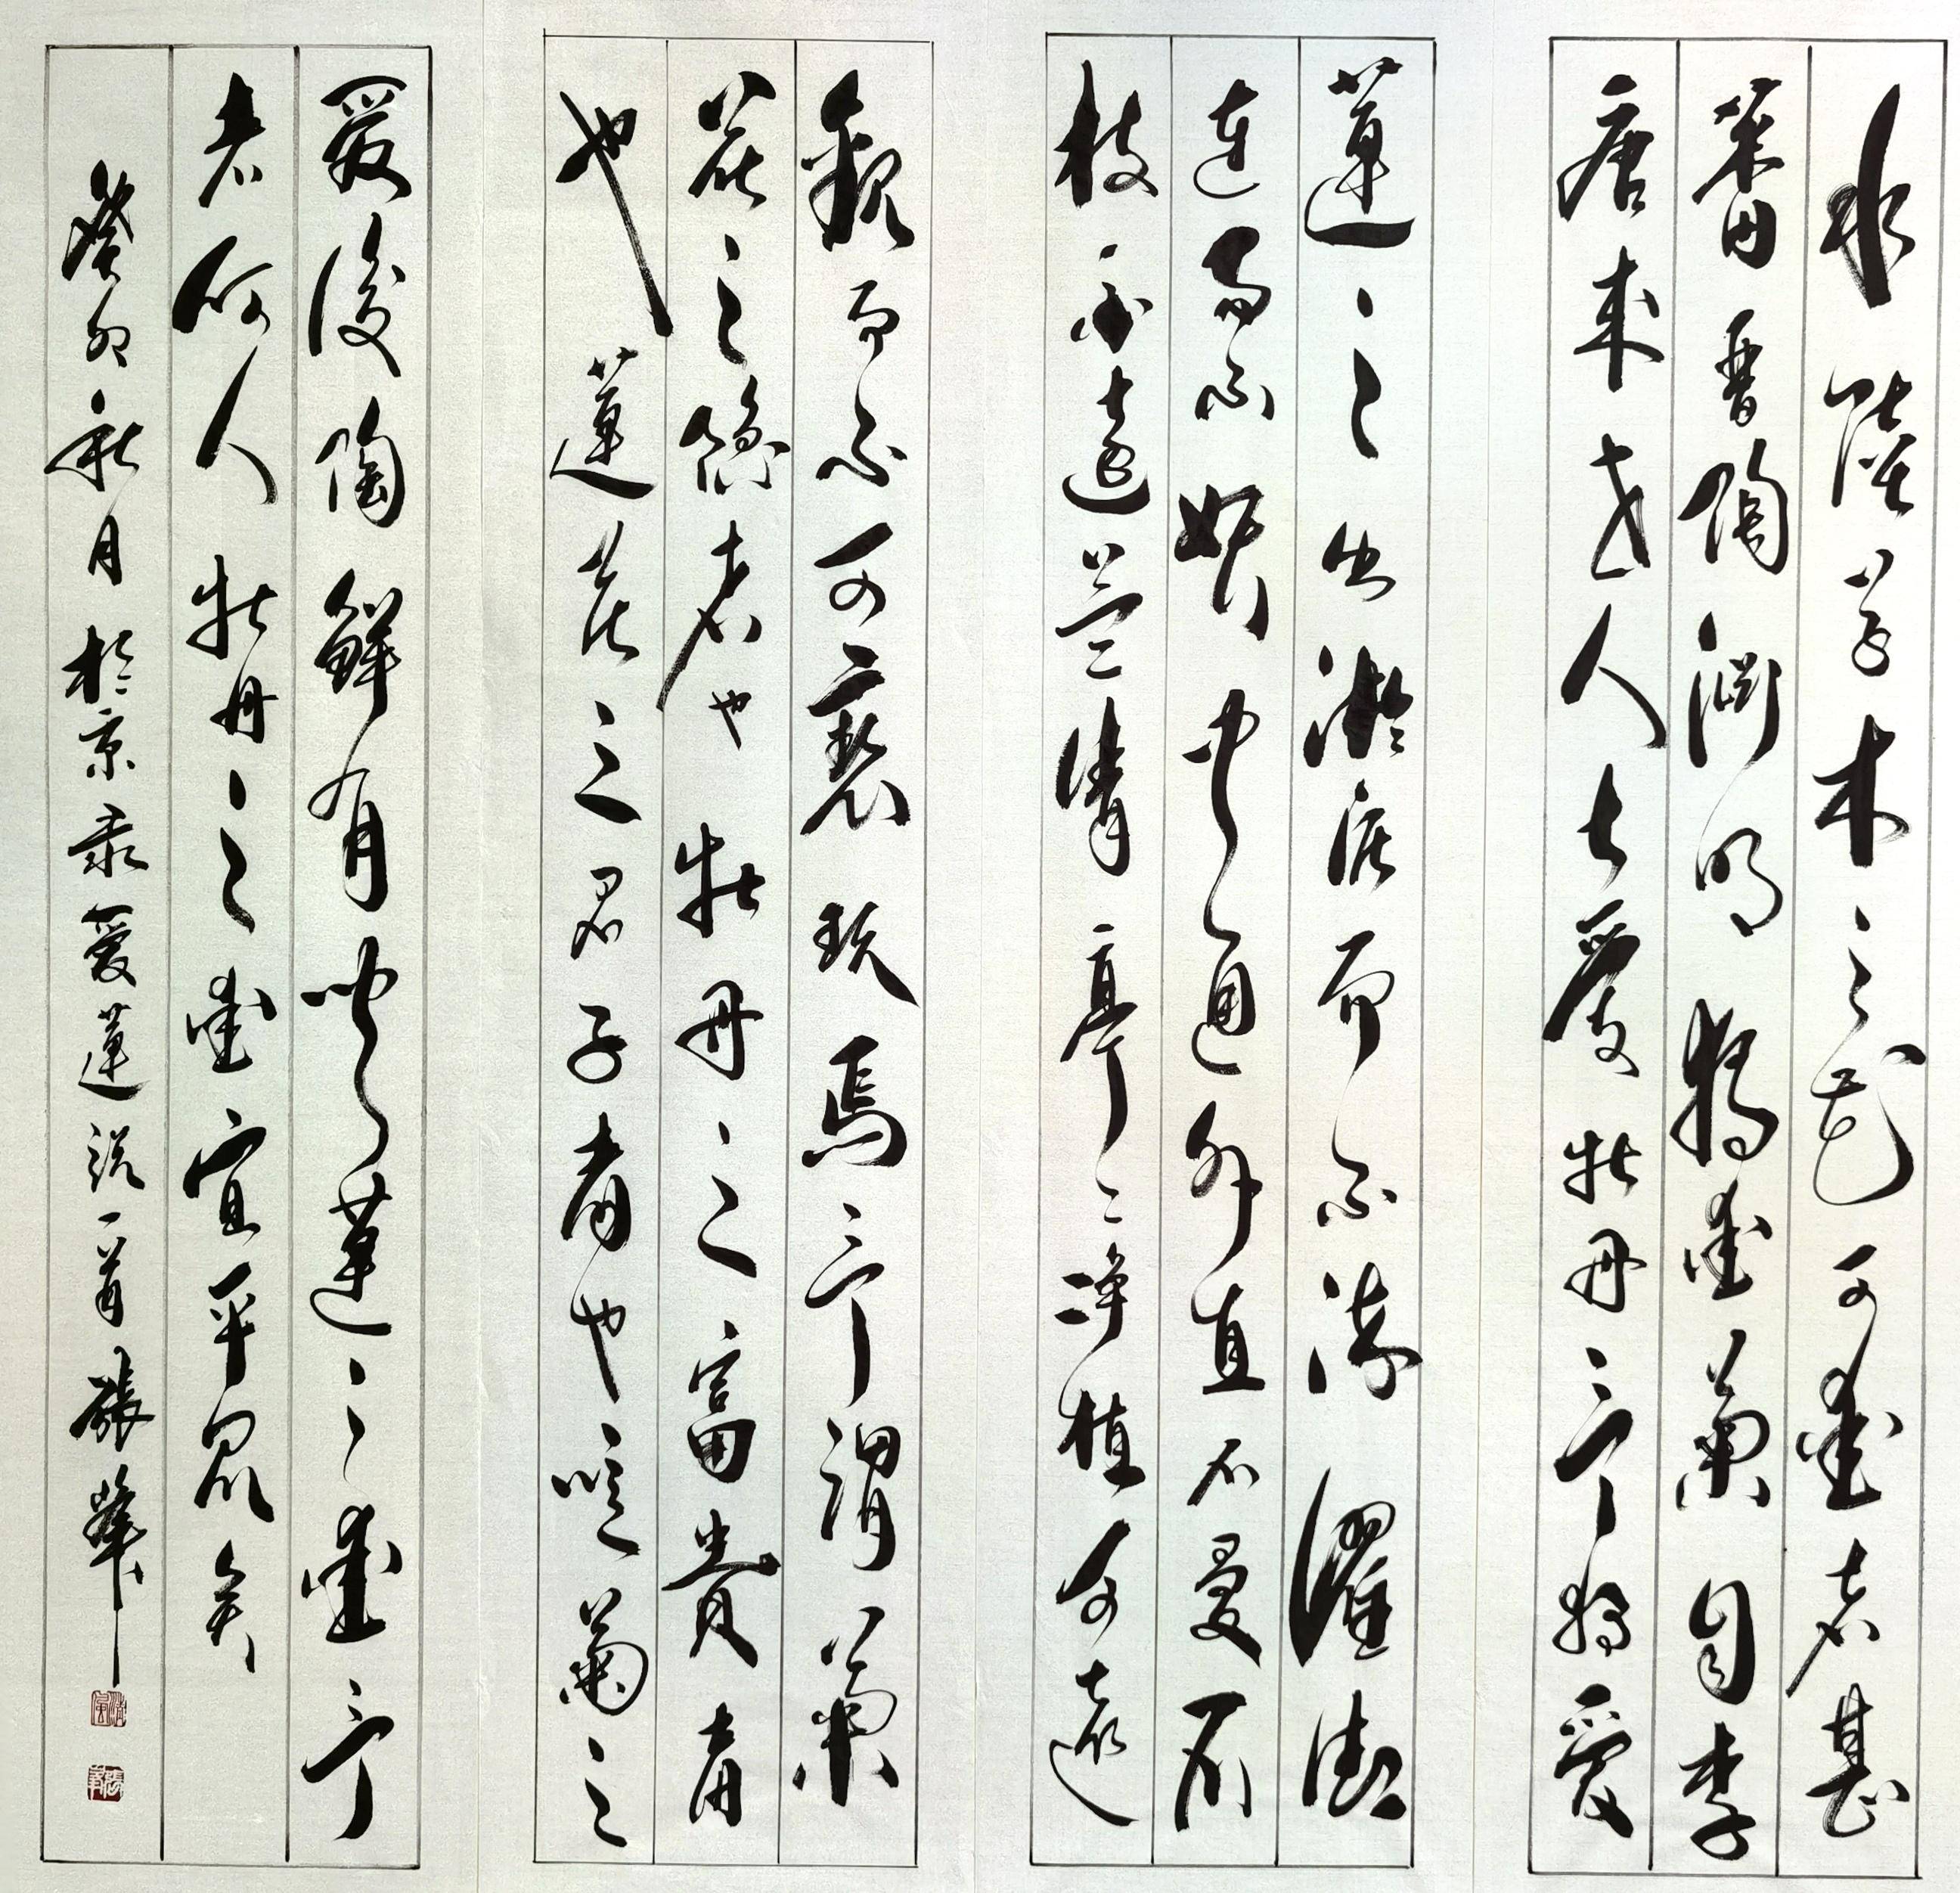 水陸草木之花可愛者甚
蕃晉陶淵明獨愛菊自李
唐來世人愛牡丹予獨愛
蓮之出淤泥而不染濯清
漣而不妖中通外直不蔓不
枝香遠益清亭亭淨植可遠
觀而不可褻玩焉予謂菊
花之隱者也牡丹之富貴者
也蓮花之君子者也噫菊之
愛後陶鮮有聞蓮之愛予
者何人牡丹之愛宜乎眾矣
癸卯秋月於京录愛蓮説一首張華